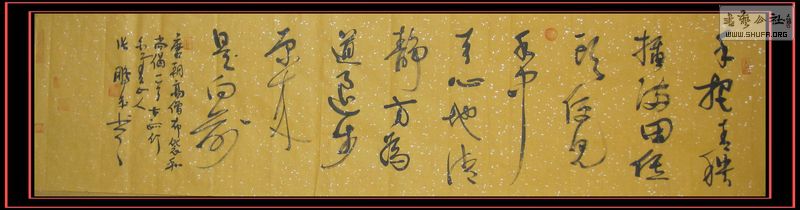 手把青秧
插满田低
头便见
水中
天心地清
静方为
道退步
原来
是向前
唐朝高僧布袋和
尚偈一首
山人
书艺公社
WWW.SHUFA.ORG